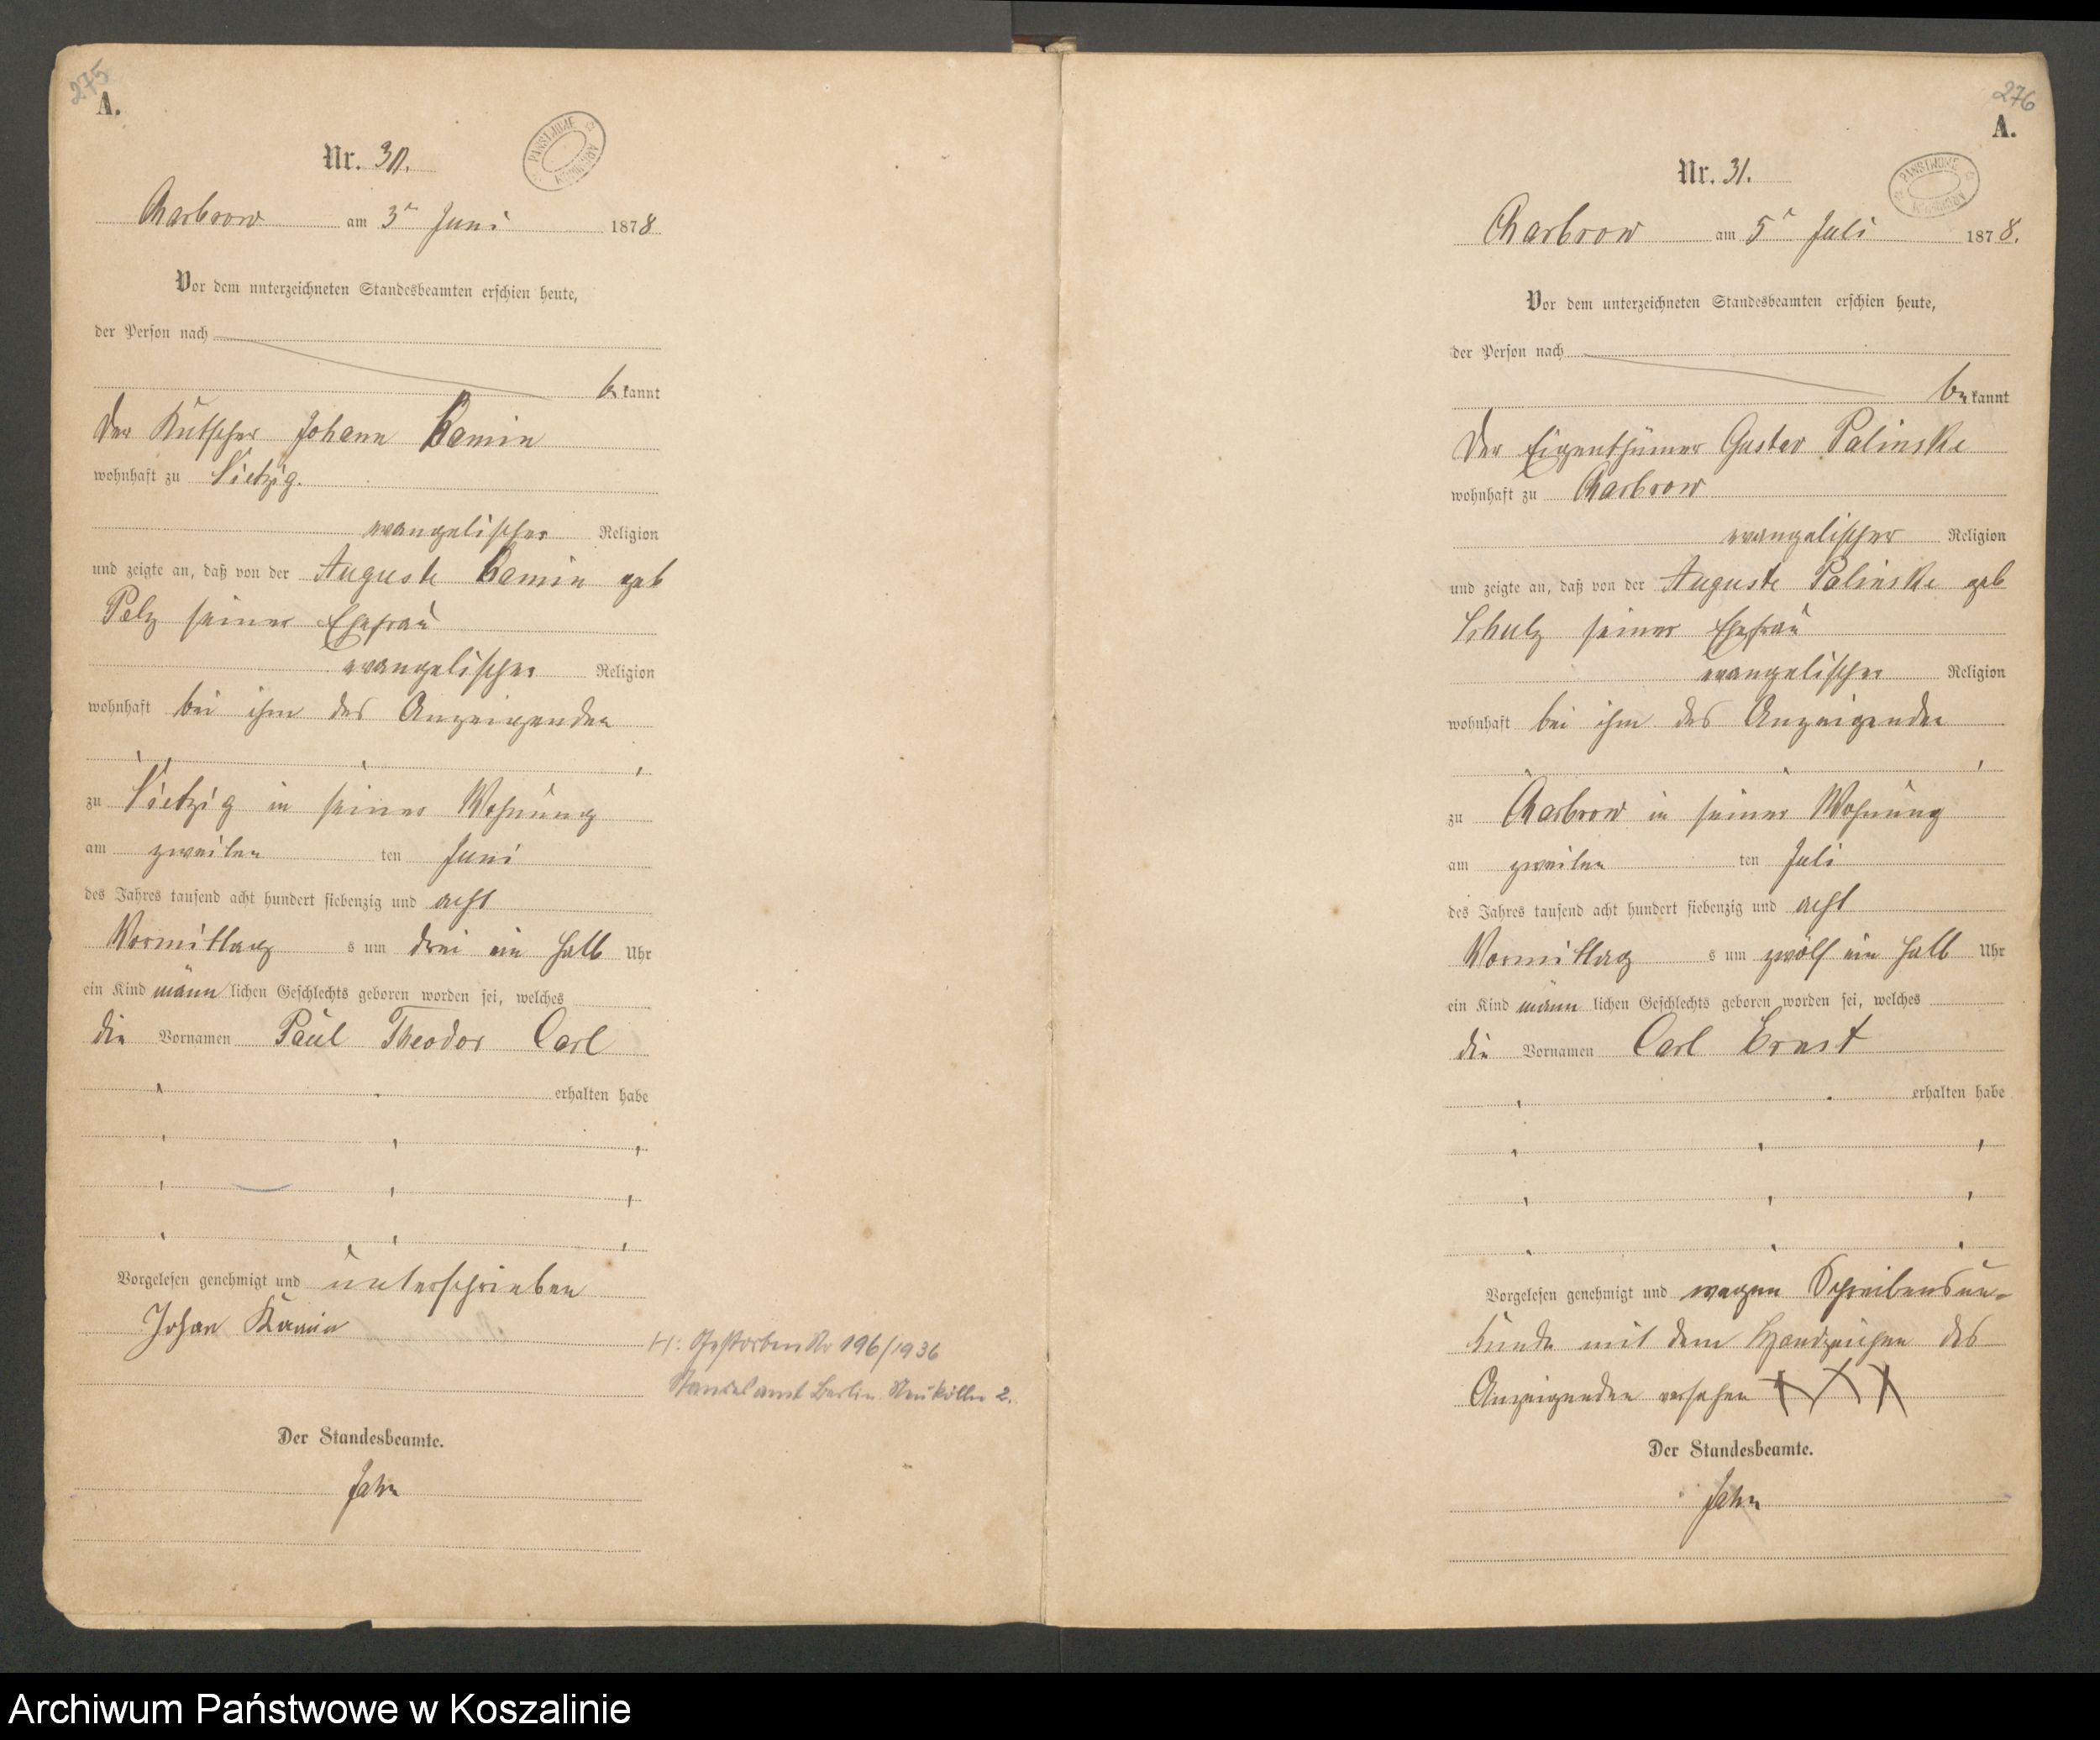 275
A.
PAŃSTWOWE ARCHIWUM
Nr. 30.
Charbrow am 3n Juni 1878
Vor dem unterzeichneten Standesbeamten erschien heute,
der Person nach
bekannt
der Kutscher Johann Kamin
wohnhaft zu Vietzig.
evangelischer Religion
und zeigte an, daß von der Auguste Kamin geb
Pelz seiner Ehefrau
evangelischer Religion
wohnhaft bei ihm des Anzeigenden
zu Vietzig in seiner Wohnung
am zweiten ten Juni
des Jahres tausend acht hundert siebenzig und acht
Vormittag s um drei ein halb Uhr
ein Kind männlichen Geschlechts geboren worden sei, welches
die Vornamen Paul Theodor Carl
erhalten habe
Vorgelesen genehmigt und unterschrieben
Johan Kamin
H: Gestorben Nr 196/1936
Standesamt Berlin Neukölln 2.
Der Standesbeamte.
Jahn
276
A.
PAŃSTWOWE ARCHIWUM
Nr. 31.
Charbrow am 5n Juli 1878.
Vor dem unterzeichneten Standesbeamten erschien heute,
der Person nach
bekannt
Der Eigenthümer Gustav Palinske
wohnhaft zu Charbrow
evangelischer Religion
und zeigte an, daß von der Auguste Palinske geb
Schulz seiner Ehefrau
evangelischer Religion
wohnhaft bei ihm des Anzeigenden
zu Charbrow in seiner Wohnung
am zweiten ten Juli
des Jahres tausend acht hundert siebenzig und acht
Vormittag s um zwölf ein halb Uhr
ein Kind männlichen Geschlechts geboren worden sei, welches
die Vornamen Carl Ernst
erhalten habe
Vorgelesen genehmigt und wegen Schreibensun-
kunde mit dem Handzeichen des
Anzeigenden versehen XXX
Der Standesbeamte.
Jahn
Archiwum Państwowe w Koszalinie